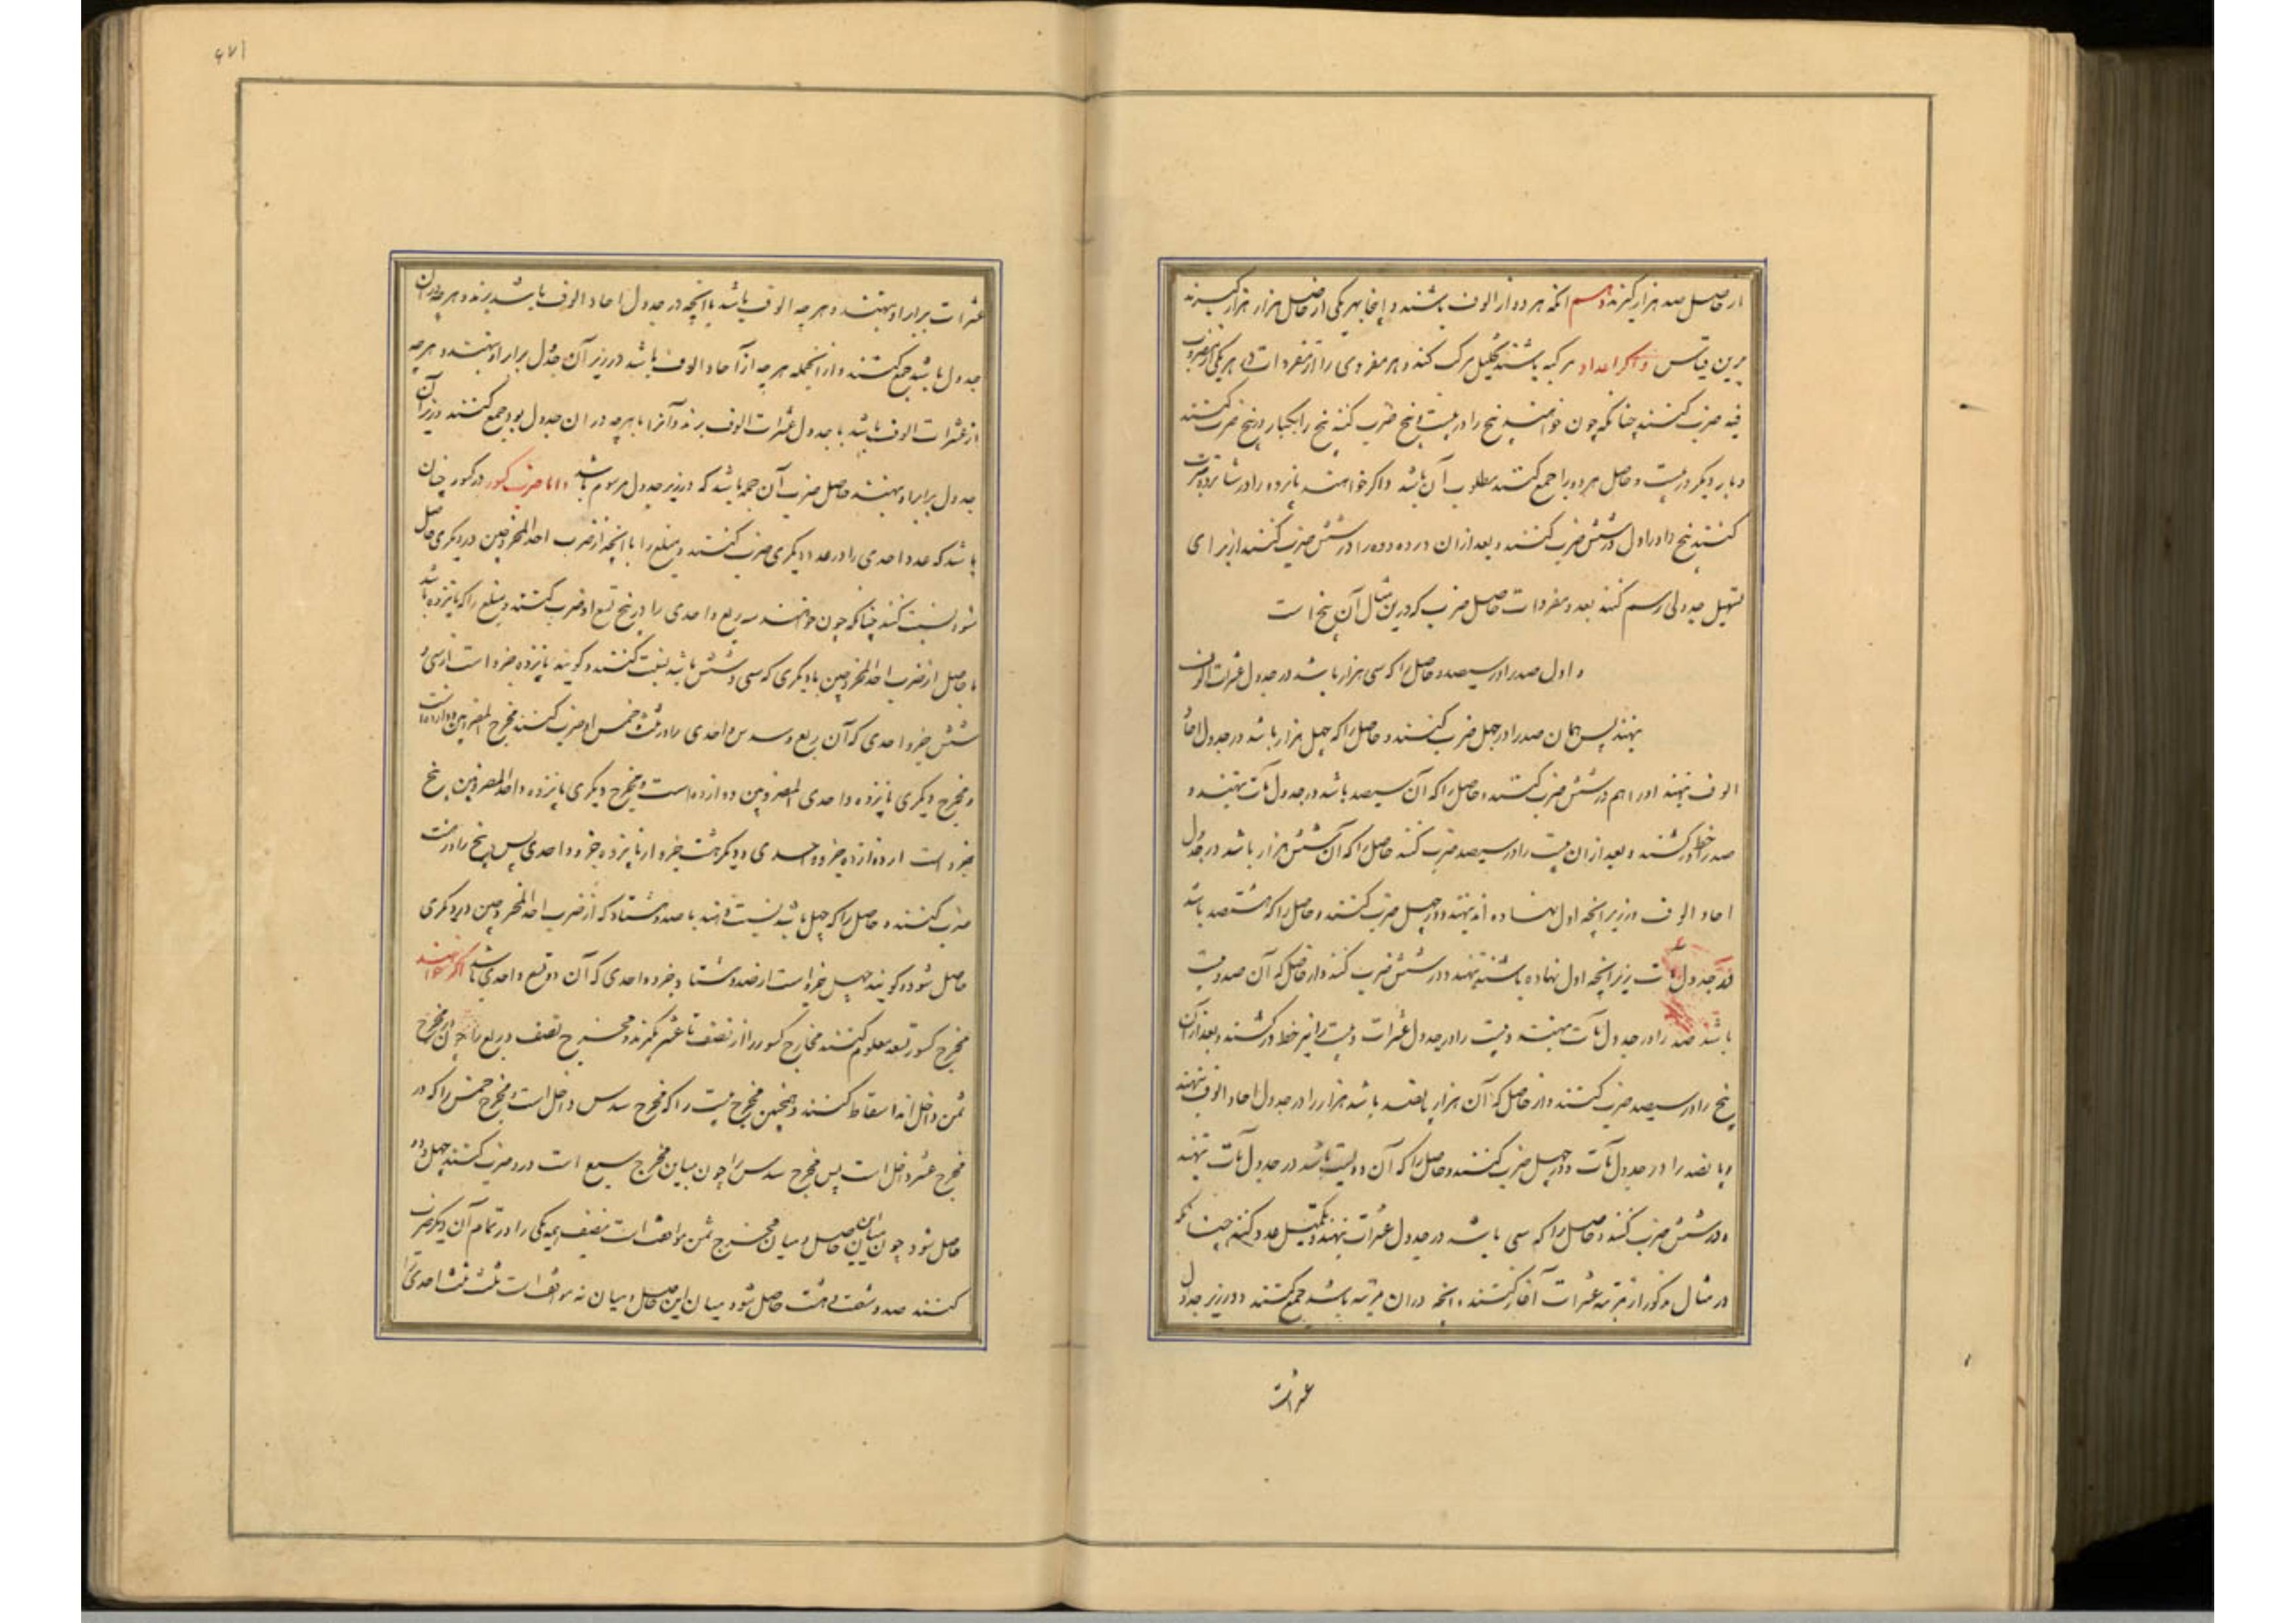 از حاصل صد هزار گیرند دهم آنکه هر دو از الوف باشند و اینجا بهر یکی از حاصل هزار هزار گیرند
برین قیاس و اگر اعداد مرکبه باشند تحلیل مرکب کنند و هر مفردی را از مفردات در هر یکی از مضروب
فیه ضرب کنند چنانکه چون خواهند پنج را در بیست و پنج ضرب کنند پنج را یکبار در پنج ضرب کنند
و بار دیگر در بیست و حاصل هر دو را جمع کنند مطلوب آن باشد و اگر خواهند پانزده را در شانزده ضرب
کنند پنج را در اول در شش ضرب کنند و بعد از آن در ده و ده را در شش ضرب کنند از برای
تسهیل جدولی رسم کنند بعدد مفردات حاصل ضرب که درین مثال آن پنج است
و اول صد را در سیصد و حاصل را که سی هزار باشد در جدول عشرات الوف
بنهند پس همان صد را در چهل ضرب کنند و حاصل را که چهل هزار باشد در جدول احاد
الوف بنهند و را هم در شش ضرب کنند و حاصل را که آن سیصد باشد در جدول مآت بنهند و
صد را خط در کشند و بعد از آن بیست را در سیصد ضرب کنند حاصل را که آن شش هزار باشد در جدول
احاد الوف در زیر آنچه اول نهاده اند بنهند و در چهل ضرب کنند و حاصل را که هشتصد باشد
در جدول مآت زیر آنچه اول نهاده باشند بنهند و در شش ضرب کنند و از حاصل که آن صد و بیست
باشد صد را در جدول مآت بنهند و بیست را در جدول عشرات و بیست را نیز خط در کشند و بعد از آن
پنج را در سیصد ضرب کنند و از حاصل که آن هزار و پانصد باشد هزار را در جدول احاد الوف بنهند
و پانصد را در جدول مآت و در چهل ضرب کنند و حاصل را که آن دویست باشد در جدول مآت بنهند
و در شش ضرب کنند و حاصل را که سی باشد در جدول عشرات بنهند و تکمیل عدد کنند چنانکه
در مثال مذکور از مرتبه عشرات آغاز کنند و آنچه در آن مرتبه باشد جمع کنند و در زیر جدول
عشرات
۶۷۱
عشرات برابر او بنهند و هر چه الوف باشد با آنچه در جدول احاد الوف باشد برند و هر چه در آن
جدول باشد جمع کنند و از آنجمله هر چه از آحاد الوف باشد در زیر آن جدول برابر او بنهند و هر چه
از عشرات الوف باشد با جدول عشرات الوف برند و آنرا با هر چه در آن جدول بود جمع کنند و زیر آن
جدول برابر او بنهند حاصل ضرب آن جمله باشد که در زیر جدول مرسوم باشد و اما ضرب کسور در کسور چنان
باشد که عدد احدی را در عدد دیگری ضرب کنند و مبلغ را با آنچه از ضرب احد المخرجین در دیگری حاصل
شود نسبت کنند چنانکه چون خواهند سه ربع واحدی را در پنج تسع او ضرب کنند و مبلغ را که پانزده باشد
با حاصل از ضرب احد المخرجین با دیگری که سی و شش باشد نسبت کنند و گویند پانزده جزو است از سی و
شش جزو واحدی که آن ربع و سدس واحدی را در ثلث و خمس او ضرب کنند مخرج المضروبین دوازده است
و مخرج دیگری پانزده و احدی المضروبین دوازده است و مخرج دیگری پانزده و احد المضروبین پنج
جزو است از دوازده جزو واحدی و دیگر هشت جزو از پانزده جزو واحدی پس پنج را در هشت
ضرب کنند و حاصل را که چهل باشد نسبت دهند با صد و هشتاد که از ضرب احد المخرجین در دیگری
حاصل شود و گویند چهل جزو است از صد و هشتاد جزو واحدی که آن دو تسع واحدی باشد اگر خواهند
مخرج کسور تسعه معلوم کنند مخارج کسور را از نصف تا عشر بگیرند و مخرج نصف و ربع را چون در مخرج
ثمن داخل اند اسقاط کنند و همچنین مخرج ثلث را که در مخرج سدس داخل است و مخرج خمس را که در
مخرج عشر داخل است پس مخرج سدس را چون مباین مخرج سبع است در و ضرب کنند چهل و دو
حاصل شود چون میان این حاصل و میان مخرج ثمن موافقت است بنصف نیمه یکی را در تمام آن دیگر ضرب
کنند صد و شصت و هشت حاصل شود میان این حاصل و میان نه موافقت است بثلث ثلث احدی را